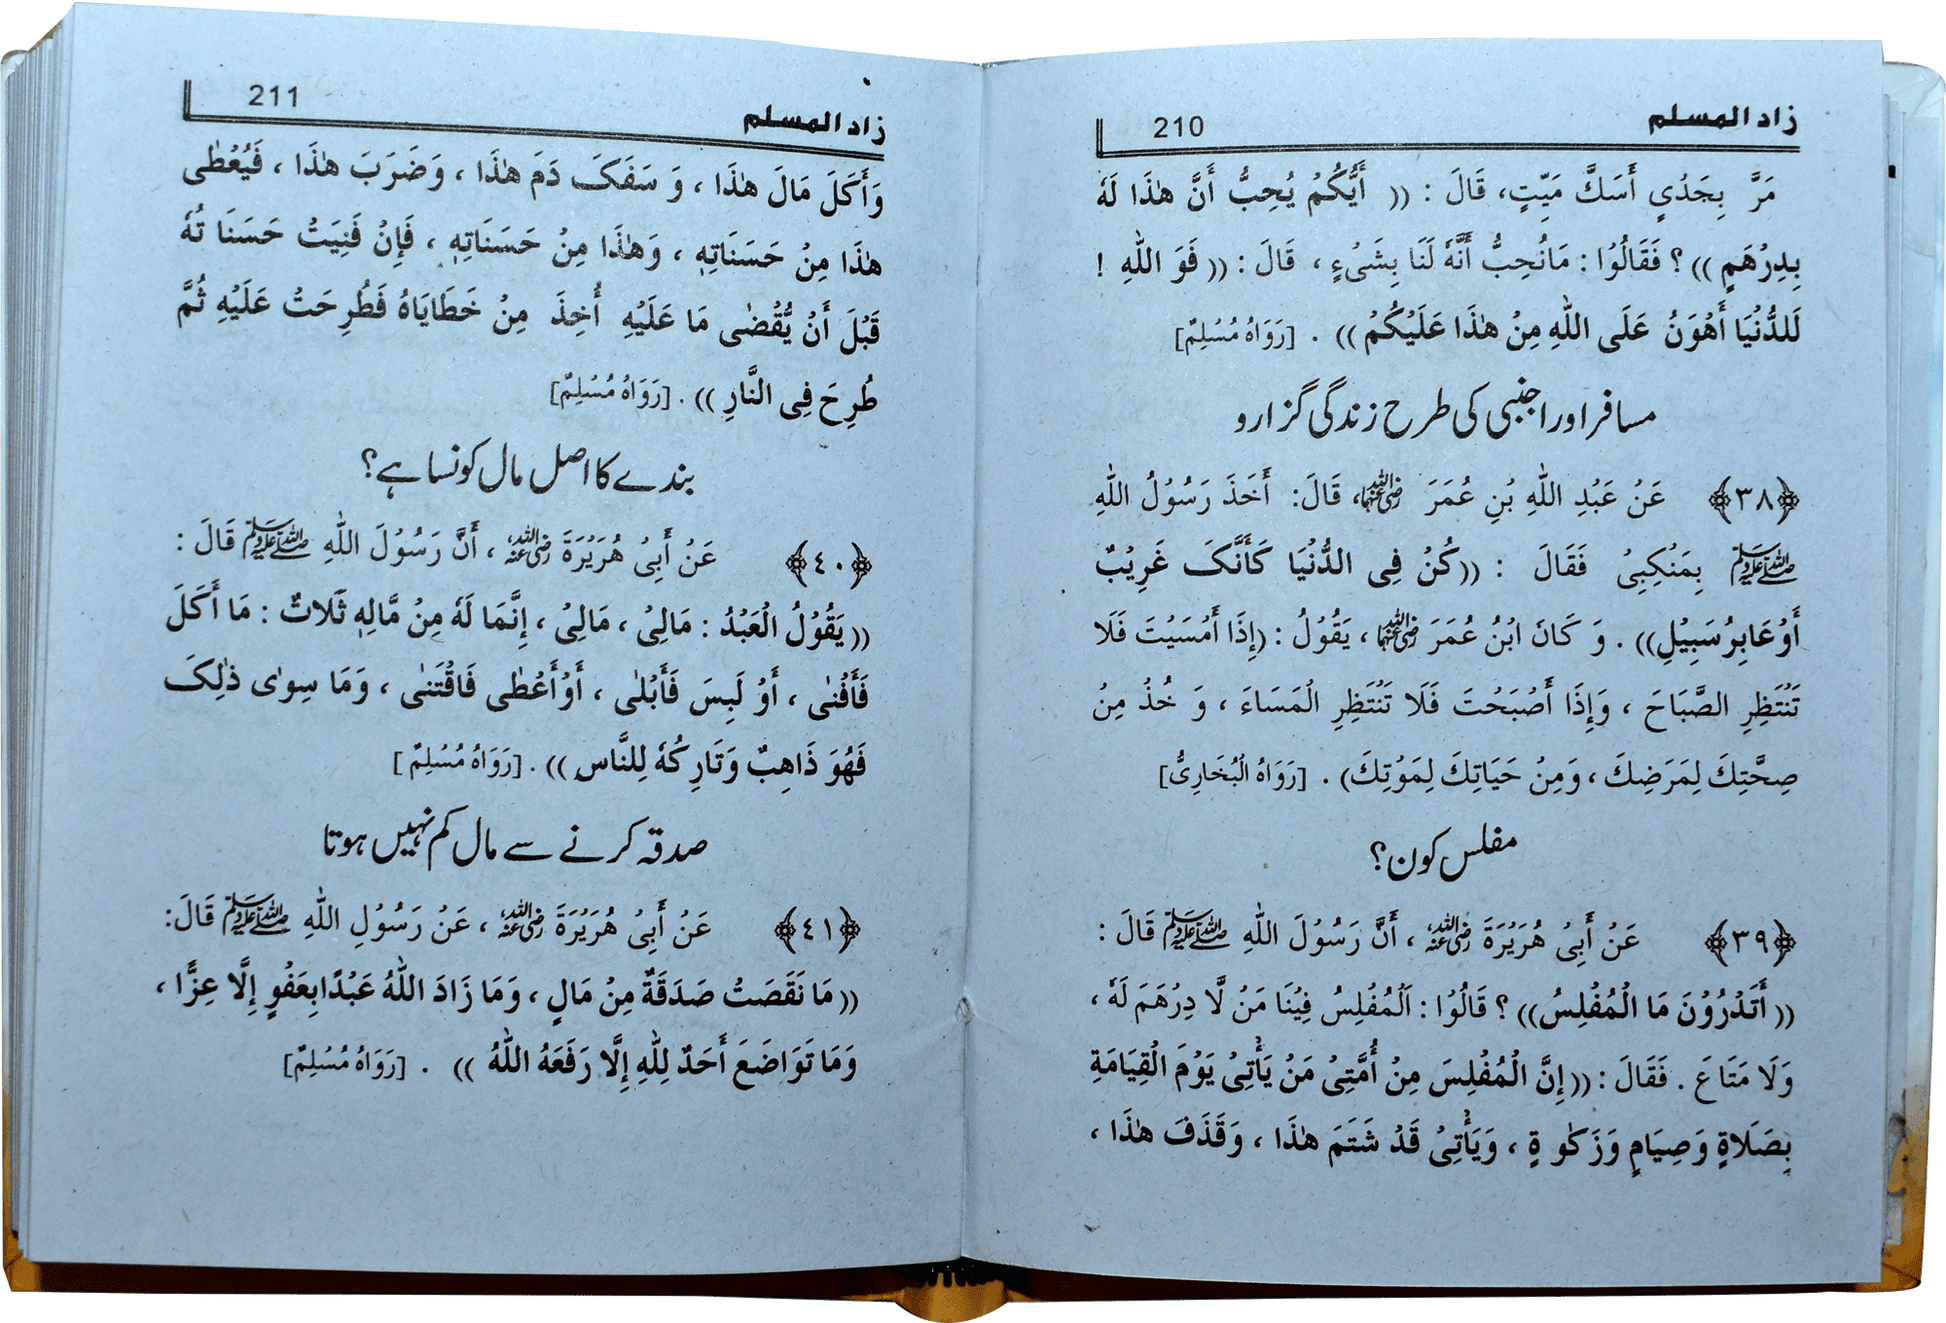 زاد المسلم 210
مَرَّ بِجَدْيٍ أَسَكَّ مَيِّتٍ، قَالَ : (( أَيُّكُمْ يُحِبُّ أَنَّ هٰذَا لَهٗ
بِدِرْهَمٍ )) ؟ فَقَالُوْا : مَانُحِبُّ أَنَّهٗ لَنَا بِشَیْءٍ ، قَالَ : (( فَوَ اللّٰهِ !
لَلدُّنْيَا أَهْوَنُ عَلَى اللّٰهِ مِنْ هٰذَا عَلَيْكُمْ )) . [رَوَاهُ مُسْلِمٌ]
مسافر اور اجنبی کی طرح زندگی گزارو
﴿٣٨﴾ عَنْ عَبْدِ اللّٰهِ بْنِ عُمَرَ رضی اللہ عنہما، قَالَ: أَخَذَ رَسُوْلُ اللّٰهِ
ﷺ بِمَنْكِبِیْ فَقَالَ : ((كُنْ فِی الدُّنْيَا كَأَنَّکَ غَرِيْبٌ
أَوْعَابِرُ سَبِيْلٍ)) . وَ كَانَ ابْنُ عُمَرَ رضی اللہ عنہما ، يَقُوْلُ : (إِذَا أَمْسَيْتَ فَلَا
تَنْتَظِرِ الصَّبَاحَ ، وَإِذَا أَصْبَحْتَ فَلَا تَنْتَظِرِ الْمَسَاءَ ، وَ خُذْ مِنْ
صِحَّتِكَ لِمَرَضِكَ ، وَمِنْ حَيَاتِكَ لِمَوْتِكَ) . [رَوَاهُ الْبُخَارِیُّ]
مفلس کون؟
﴿٣٩﴾ عَنْ أَبِیْ هُرَيْرَةَ رضی اللہ عنہ ، أَنَّ رَسُوْلَ اللّٰهِ ﷺ قَالَ :
(( أَتَدْرُوْنَ مَا الْمُفْلِسُ)) ؟ قَالُوْا : اَلْمُفْلِسُ فِيْنَا مَنْ لَّا دِرْهَمَ لَهٗ ،
وَلَا مَتَاعَ . فَقَالَ : ((إِنَّ الْمُفْلِسَ مِنْ أُمَّتِیْ مَنْ يَأْتِیْ يَوْمَ الْقِيَامَةِ
بِصَلَاةٍ وَصِيَامٍ وَزَكٰوةٍ ، وَيَأْتِیْ قَدْ شَتَمَ هٰذَا ، وَقَذَفَ هٰذَا ،
زاد المسلم 211
وَأَكَلَ مَالَ هٰذَا ، وَ سَفَکَ دَمَ هٰذَا ، وَضَرَبَ هٰذَا ، فَيُعْطٰی
هٰذَا مِنْ حَسَنَاتِهٖ ، وَهٰذَا مِنْ حَسَنَاتِهٖ ، فَإِنْ فَنِيَتْ حَسَنَا تُهٗ
قَبْلَ أَنْ يُّقْضٰی مَا عَلَيْهِ أُخِذَ مِنْ خَطَايَاهُ فَطُرِحَتْ عَلَيْهِ ثُمَّ
طُرِحَ فِی النَّارِ )) . [رَوَاهُ مُسْلِمٌ]
بندے کا اصل مال کونسا ہے؟
﴿٤٠﴾ عَنْ أَبِیْ هُرَيْرَةَ رضی اللہ عنہ ، أَنَّ رَسُوْلَ اللّٰهِ ﷺ قَالَ :
(( يَقُوْلُ الْعَبْدُ : مَالِیْ ، مَالِیْ ، إِنَّمَا لَهٗ مِنْ مَّالِهٖ ثَلَاثٌ : مَا أَكَلَ
فَأَفْنٰی ، أَوْ لَبِسَ فَأَبْلٰی ، أَوْأَعْطٰی فَاقْتَنٰی ، وَمَا سِوٰی ذٰلِکَ
فَهُوَ ذَاهِبٌ وَتَارِكُهٗ لِلنَّاسِ )) . [رَوَاهُ مُسْلِمٌ]
صدقہ کرنے سے مال کم نہیں ہوتا
﴿٤١﴾ عَنْ أَبِیْ هُرَيْرَةَ رضی اللہ عنہ ، عَنْ رَسُوْلِ اللّٰهِ ﷺ قَالَ:
(( مَا نَقَصَتْ صَدَقَةٌ مِنْ مَالٍ ، وَمَا زَادَ اللّٰهُ عَبْدًابِعَفْوٍ إِلَّا عِزًّا ،
وَمَا تَوَاضَعَ أَحَدٌ لِلّٰهِ إِلَّا رَفَعَهُ اللّٰهُ )) . [رَوَاهُ مُسْلِمٌ]